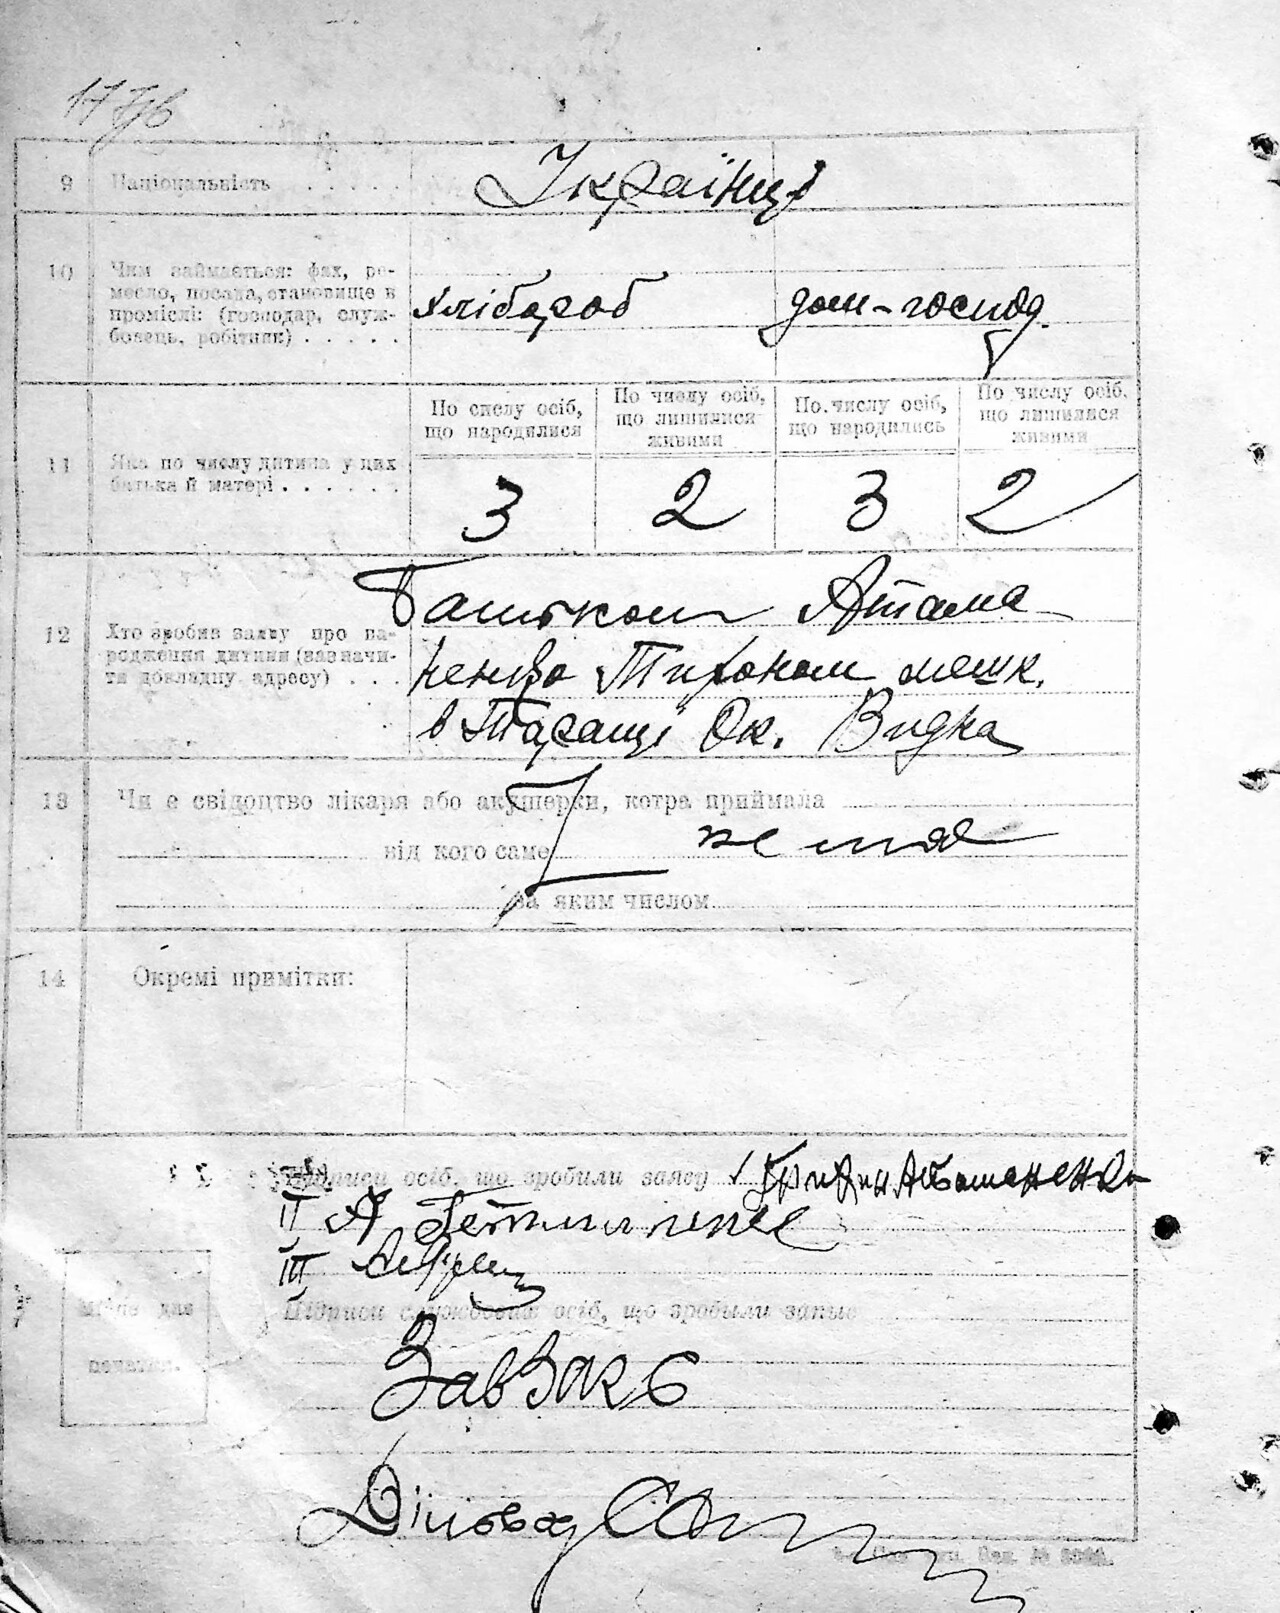 177зв
9 Національність . . . . . Українці
10 Чим займається: фах, ре-
месло, посада, становище в
проміслі: (господар, служ-
бовець, робітник) . . . . .
хлібороб дом-господ.
По числу осіб,
що народилися
По числу осіб,
що лишилися
живими
По числу осіб,
що народились
По числу осіб,
що лишилися
живими
11 Яка по числу дитина у цих
батька й матері . . . . . .
3 2 3 2
12 Хто зробив заяву про на-
родження дитини (вазначи-
ти докладну адресу) . . .
Батьком Атама
ненко Тихоном мешк.
в Таращі Ок.
13 Чи є свідоцтво лікаря або акушерки, котра приймала
від кого саме
за яким числом
14 Окремі примітки:
Підписи осіб, що зробили заяву
II
III
Підписи службових осіб, що зробили запис
Місце для
печатки.
ЗавЗАКС
Діловод